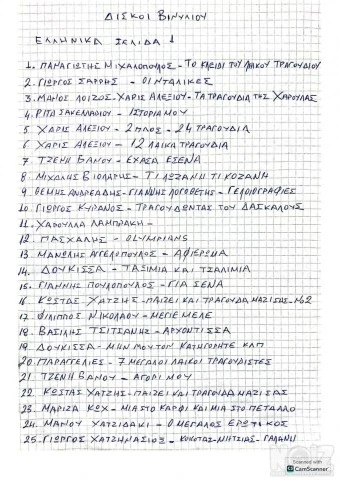 ΔΙΣΚΟΙ ΒΙΝΥΛΙΟΥ
ΕΛΛΗΝΙΚΑ ΣΕΛΙΔΑ 1
1. ΠΑΝΑΓΙΩΤΗΣ ΜΙΧΑΛΟΠΟΥΛΟΣ - ΤΟ ΚΛΕΙΔΙ ΤΟΥ ΛΑΙΚΟΥ ΤΡΑΓΟΥΔΙΟΥ
2. ΓΙΩΡΓΟΣ ΣΑΡΡΗΣ - ΟΙ ΝΤΑΛΙΚΕΣ
3. ΜΑΝΟΣ ΛΟΙΖΟΣ - ΧΑΡΙΣ ΑΛΕΞΙΟΥ - ΤΑ ΤΡΑΓΟΥΔΙΑ ΤΗΣ ΧΑΡΟΥΛΑΣ
4. ΡΙΤΑ ΣΑΚΕΛΛΑΡΙΟΥ - ΙΣΤΟΡΙΑ ΜΟΥ
5. ΧΑΡΙΣ ΑΛΕΞΙΟΥ - 2ΠΛΟΣ - 24 ΤΡΑΓΟΥΔΙΑ
6. ΧΑΡΙΣ ΑΛΕΞΙΟΥ - 12 ΛΑΙΚΑ ΤΡΑΓΟΥΔΙΑ
7. ΤΖΕΝΗ ΒΑΝΟΥ - ΕΧΑΣΑ ΕΣΕΝΑ
8 ΜΙΧΑΛΗΣ ΒΙΟΛΑΡΗΣ - ΤΙ ΛΩΖΑΝΗ ΤΙ ΚΟΖΑΝΗ
9. ΘΕΜΗΣ ΑΝΔΡΕΑΔΗΣ - ΓΙΑΝΝΗΣ ΛΟΓΟΘΕΤΗΣ - ΓΕΛΟΙΟΓΡΑΦΙΕΣ
10. ΓΙΩΡΓΟΣ ΚΥΡΑΝΟΣ - ΤΡΑΓΟΥΔΩΝΤΑΣ ΤΟΥ ΔΑΣΚΑΛΟΥΣ
11. ΧΑΡΟΥΛΑ ΛΑΜΠΡΑΚΗ -
12. ΠΑΣΧΑΛΗΣ - OLYMPIANS
13. ΜΑΝΩΛΗΣ ΑΓΓΕΛΟΠΟΥΛΟΣ - ΑΦΙΕΡΩΜΑ
14. ΔΟΥΚΙΣΣΑ - ΤΑΞΙΜΙΑ ΚΑΙ ΤΣΑΛΙΜΙΑ
15. ΓΙΑΝΝΗΣ ΠΟΥΛΟΠΟΥΛΟΣ - ΓΙΑ ΣΕΝΑ
16. ΚΩΣΤΑΣ ΧΑΤΖΗΣ - ΠΑΙΖΕΙ ΚΑΙ ΤΡΑΓΟΥΔΑ ΜΑΖΙ ΣΑΣ - Νο2
17. ΦΙΛΙΠΠΟΣ ΝΙΚΟΛΑΟΥ - ΜΕΓΙΕ ΜΕΛΕ
18. ΒΑΣΙΛΗΣ ΤΣΙΤΣΑΝΗΣ - ΑΡΧΟΝΤΙΣΣΑ
19. ΔΟΥΚΙΣΣΑ - ΜΗΝ ΜΟΥ ΤΟΝ ΚΑΤΗΓΟΡΗΤΕ ΚΛΠ
20. ΠΑΡΑΓΓΕΛΙΕΣ - 7 ΜΕΓΑΛΟΙ ΛΑΙΚΟΙ ΤΡΑΓΟΥΔΙΣΤΕΣ
21. ΤΖΕΝΗ ΒΑΝΟΥ - ΑΓΟΡΙ ΜΟΥ
22. ΚΩΣΤΑΣ ΧΑΤΖΗΣ - ΠΑΙΖΕΙ ΚΑΙ ΤΡΑΓΟΥΔΑ ΜΑΖΙ ΣΑΣ
23. ΜΑΡΙΖΑ ΚΩΧ - ΜΙΑ ΣΤΟ ΚΑΡΦΙ ΚΑΙ ΜΙΑ ΣΤΟ ΠΕΤΑΛΟ
24. ΜΑΝΟΥ ΧΑΤΖΙΔΑΚΙ - Ο ΜΕΓΑΛΟΣ ΕΡΩΤΙΚΟΣ
25. ΓΙΩΡΓΟΣ ΧΑΤΖΗΝΑΣΙΟΣ - ΚΟΚΟΤΑΣ - ΜΗΤΣΙΑΣ - ΓΑΛΑΝΗ
Scanned with
CamScanner
CS